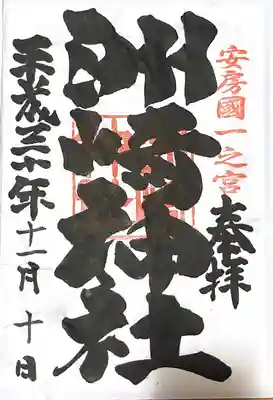 安房國一之宮
奉拝
洲崎神社
平成三十年十一月十日